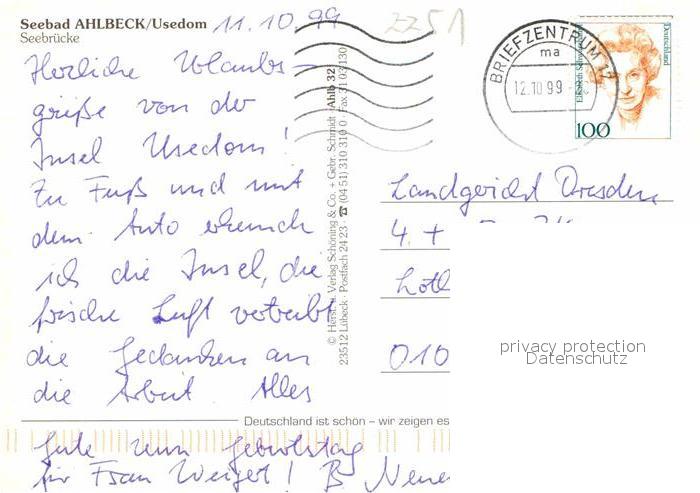 Seebad AHLBECK/Usedom
Seebrücke
11.10.99
2251
Herzliche Urlaubs-
grüße von der
Insel Usedom!
Zu Fuß und mit
dem Auto erkunde
ich die Insel, die
frische Luft vertreibt
die Gedanken an
die Arbeit. Alles
Gute zum Geburtstag
für Frau Weigel! B.
© Herst. u. Verlag Schöning & Co. + Gebr. Schmidt
23512 Lübeck · Postfach 24 23 · ☎ (04 51) 310 310 · Fax 31 03 130
Ahlb 32
BRIEFZENTRUM 17
ma
12.10.99
Deutschland
100
Landgericht Dresden
4. +
Loth
010
privacy protection
Datenschutz
Deutschland ist schön – wir zeigen es